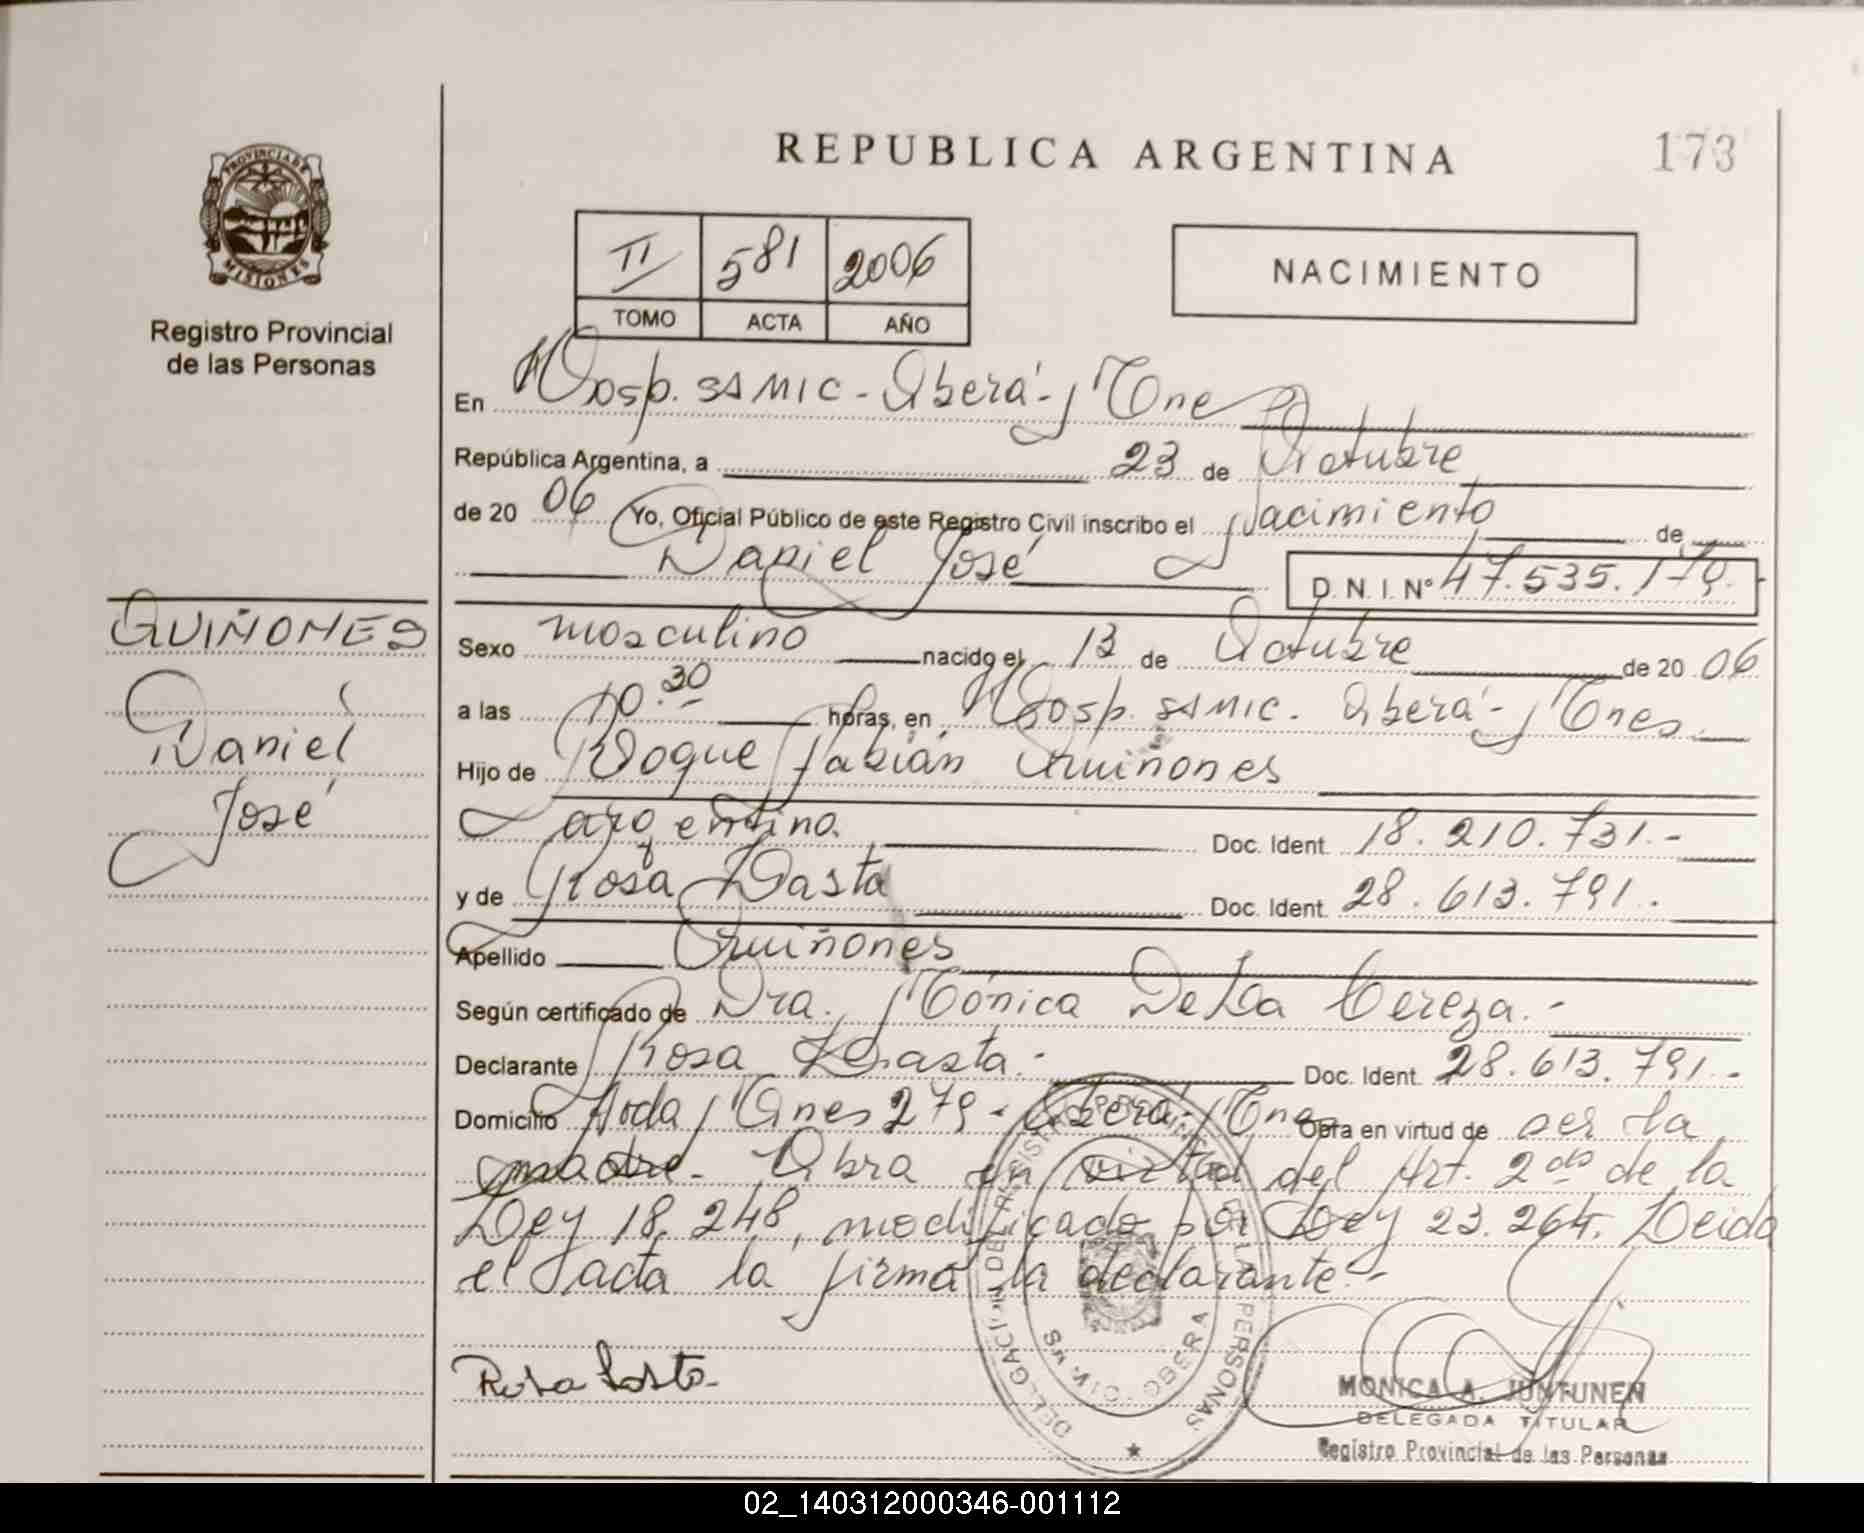 REPUBLICA ARGENTINA
173
PROVINCIA DE
MISIONES
Registro Provincial
de las Personas
II 581 2006
TOMO ACTA AÑO
NACIMIENTO
En Hosp. SAMIC - Oberá - Mnes
República Argentina, a 23 de Octubre
de 20 06 Yo, Oficial Público de este Registro Civil inscribo el Nacimiento de
Daniel José
D. N. I. Nº 47.535.179.
QUIÑONES
Daniel
José
Sexo masculino nacido el 13 de Octubre de 20 06
a las 10.30 horas, en Hosp. SAMIC. Oberá - Mnes.
Hijo de Roque Fabián Quiñones
argentino. Doc. Ident. 18.210.731.-
y de Rosa Lasta Doc. Ident. 28.613.791.-
Apellido Quiñones
Según certificado de Dra. Mónica De La Cereza.-
Declarante Rosa Lasta.- Doc. Ident. 28.613.791.-
Domicilio Avda Mnes 279 - Oberá - Mnes Obra en virtud de ser la
madre. Obra en virtud del Art. 2do de la
Ley 18.248, modificado por Ley 23.264. Leida
el acta la firma la declarante.-
Rosa Lasta
DELEGACION DEL REGISTRO PROVINCIAL DE LAS PERSONAS
OBERA
MONICA A. JUNTUNEN
DELEGADA TITULAR
Registro Provincial de las Personas
02_140312000346-001112